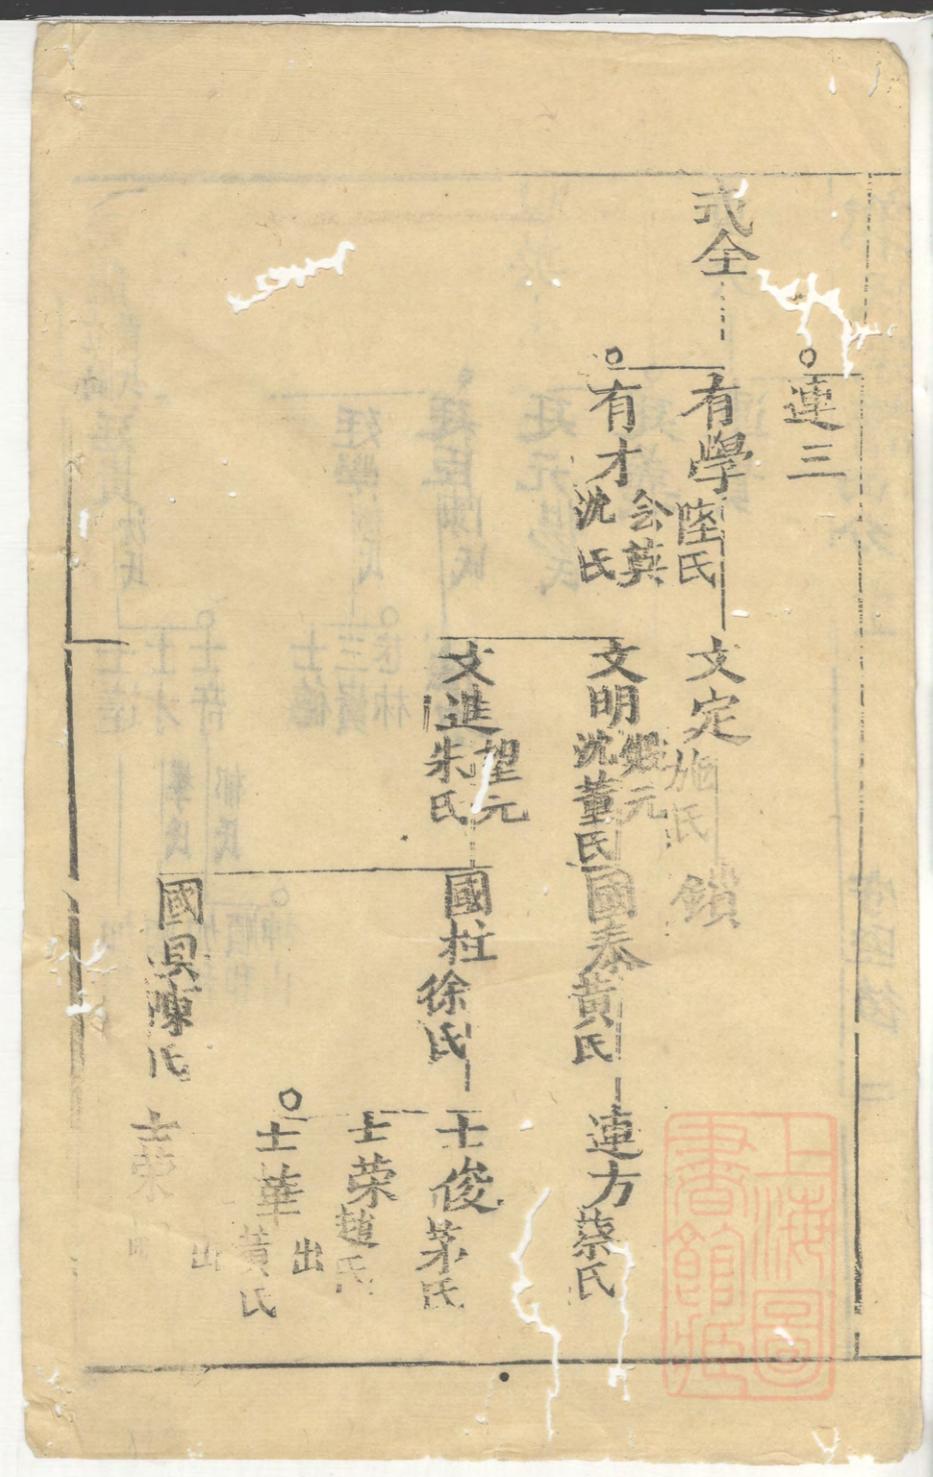 連三
式全
有學 陸氏
有才 会英 沈氏
文定 施氏
文明 沈董氏
文進 望元 朱氏
鎖
國泰 黄氏
國柱 徐氏
國具 陳氏
連方 蔡氏
士俊 茅氏
士荣 趙氏
出
士華 黄氏
出
士荣
上海圖書館藏